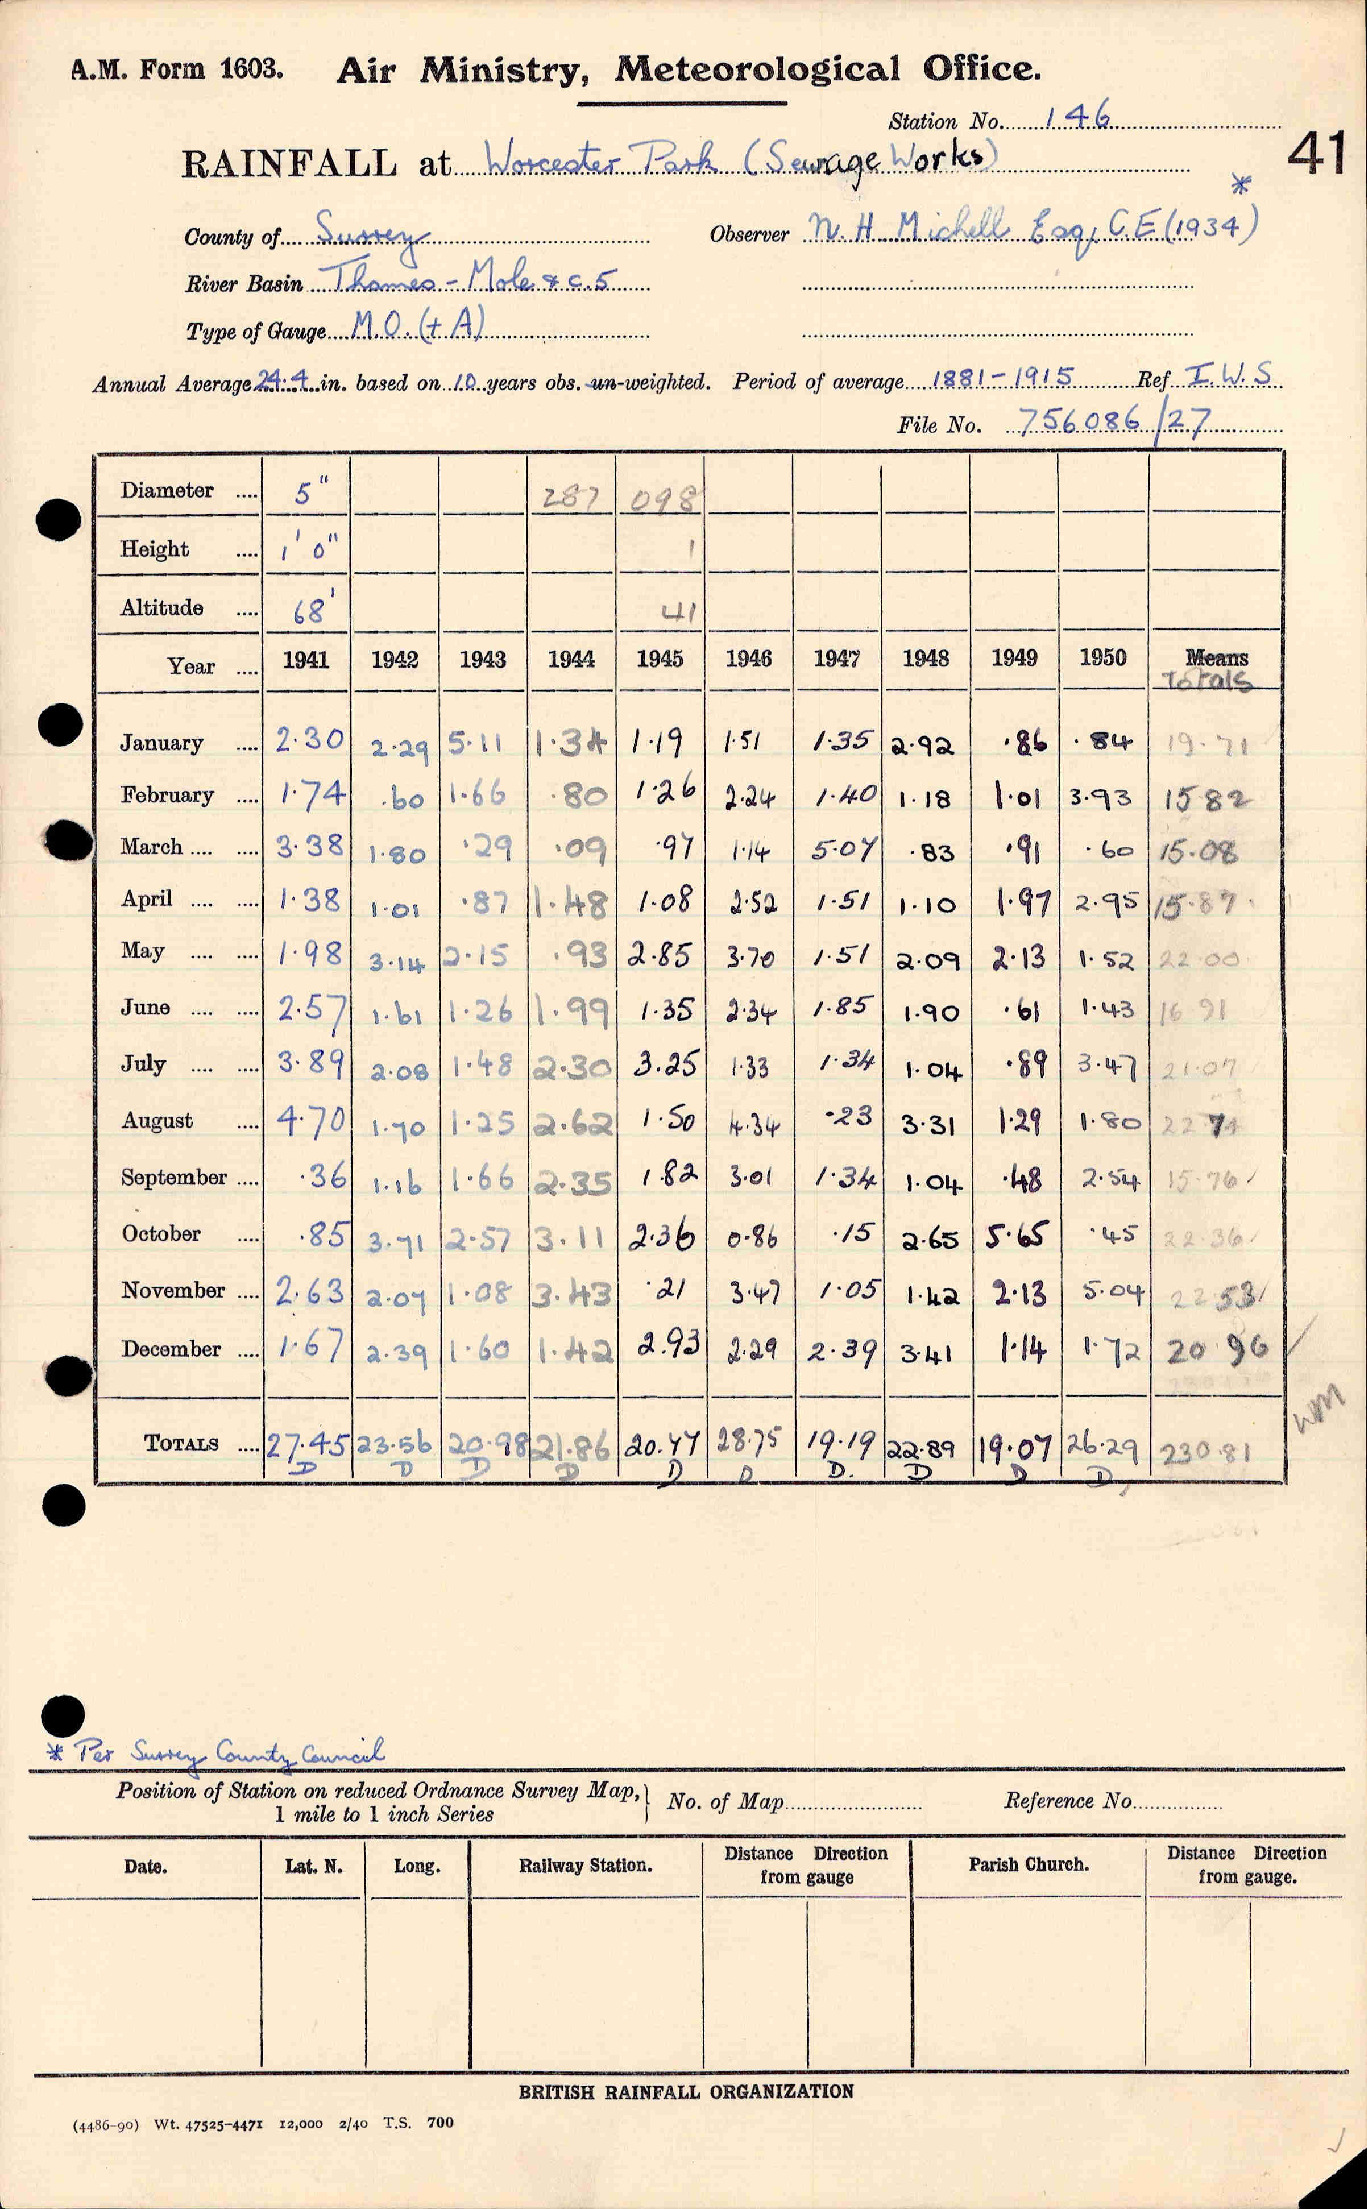 A.M. Form 1603. Air Ministry, Meteorological Office.
Station No. 146
41
RAINFALL at Worcester Park (Sewage Works)
*
County of Surrey Observer N. H. Michell Esq, C.E (1934)
River Basin Thames - Mole & c. 5
Type of Gauge M.O. (+ A)
Annual Average 24.4 in. based on 10 years obs. un-weighted. Period of average 1881-1915 Ref I.W.S
File No. 756086/27
Diameter .... 5" 287 098
Height .... 1' 0" 1
Altitude .... 68' 41
Year .... 1941 1942 1943 1944 1945 1946 1947 1948 1949 1950 Means
Totals
January .... 2.30 2.29 5.11 1.34 1.19 1.51 1.35 2.92 .86 .84 19.71
February .... 1.74 .60 1.66 .80 1.26 2.24 1.40 1.18 1.01 3.93 15 82
March .... .... 3.38 1.80 .29 .09 .97 1.14 5.07 .83 .91 .60 15.08
April .... .... 1.38 1.01 .87 1.48 1.08 2.52 1.51 1.10 1.97 2.95 15.87
May .... .... 1.98 3.14 2.15 .93 2.85 3.70 1.51 2.09 2.13 1.52 22.00
June .... .... 2.57 1.61 1.26 1.99 1.35 2.34 1.85 1.90 .61 1.43 16 91
July .... .... 3.89 2.08 1.48 2.30 3.25 1.33 1.34 1.04 .89 3.47 21.07
August .... 4.70 1.70 1.25 2.62 1.50 4.34 .23 3.31 1.29 1.80 22 74
September .... .36 1.16 1.66 2.35 1.82 3.01 1.34 1.04 .48 2.54 15.76
October .... .85 3.71 2.57 3.11 2.36 0.86 .15 2.65 5.65 .45 22.36
November .... 2.63 2.07 1.08 3.43 .21 3.47 1.05 1.42 2.13 5.04 22 53
December .... 1.67 2.39 1.60 1.42 2.93 2.29 2.39 3.41 1.14 1.72 20 96
WM
TOTALS .... 27.45 23.56 20.98 21.86 20.77 28.75 19.19 22.89 19.07 26.29 230.81
D D D D D D D. D D D
* Per Surrey County Council
Position of Station on reduced Ordnance Survey Map, } No. of Map Reference No.
1 mile to 1 inch Series
Date. Lat. N. Long. Railway Station. Distance Direction from gauge Parish Church. Distance Direction from gauge.
BRITISH RAINFALL ORGANIZATION
(4486-90) Wt. 47525-4471 12,000 2/40 T.S. 700